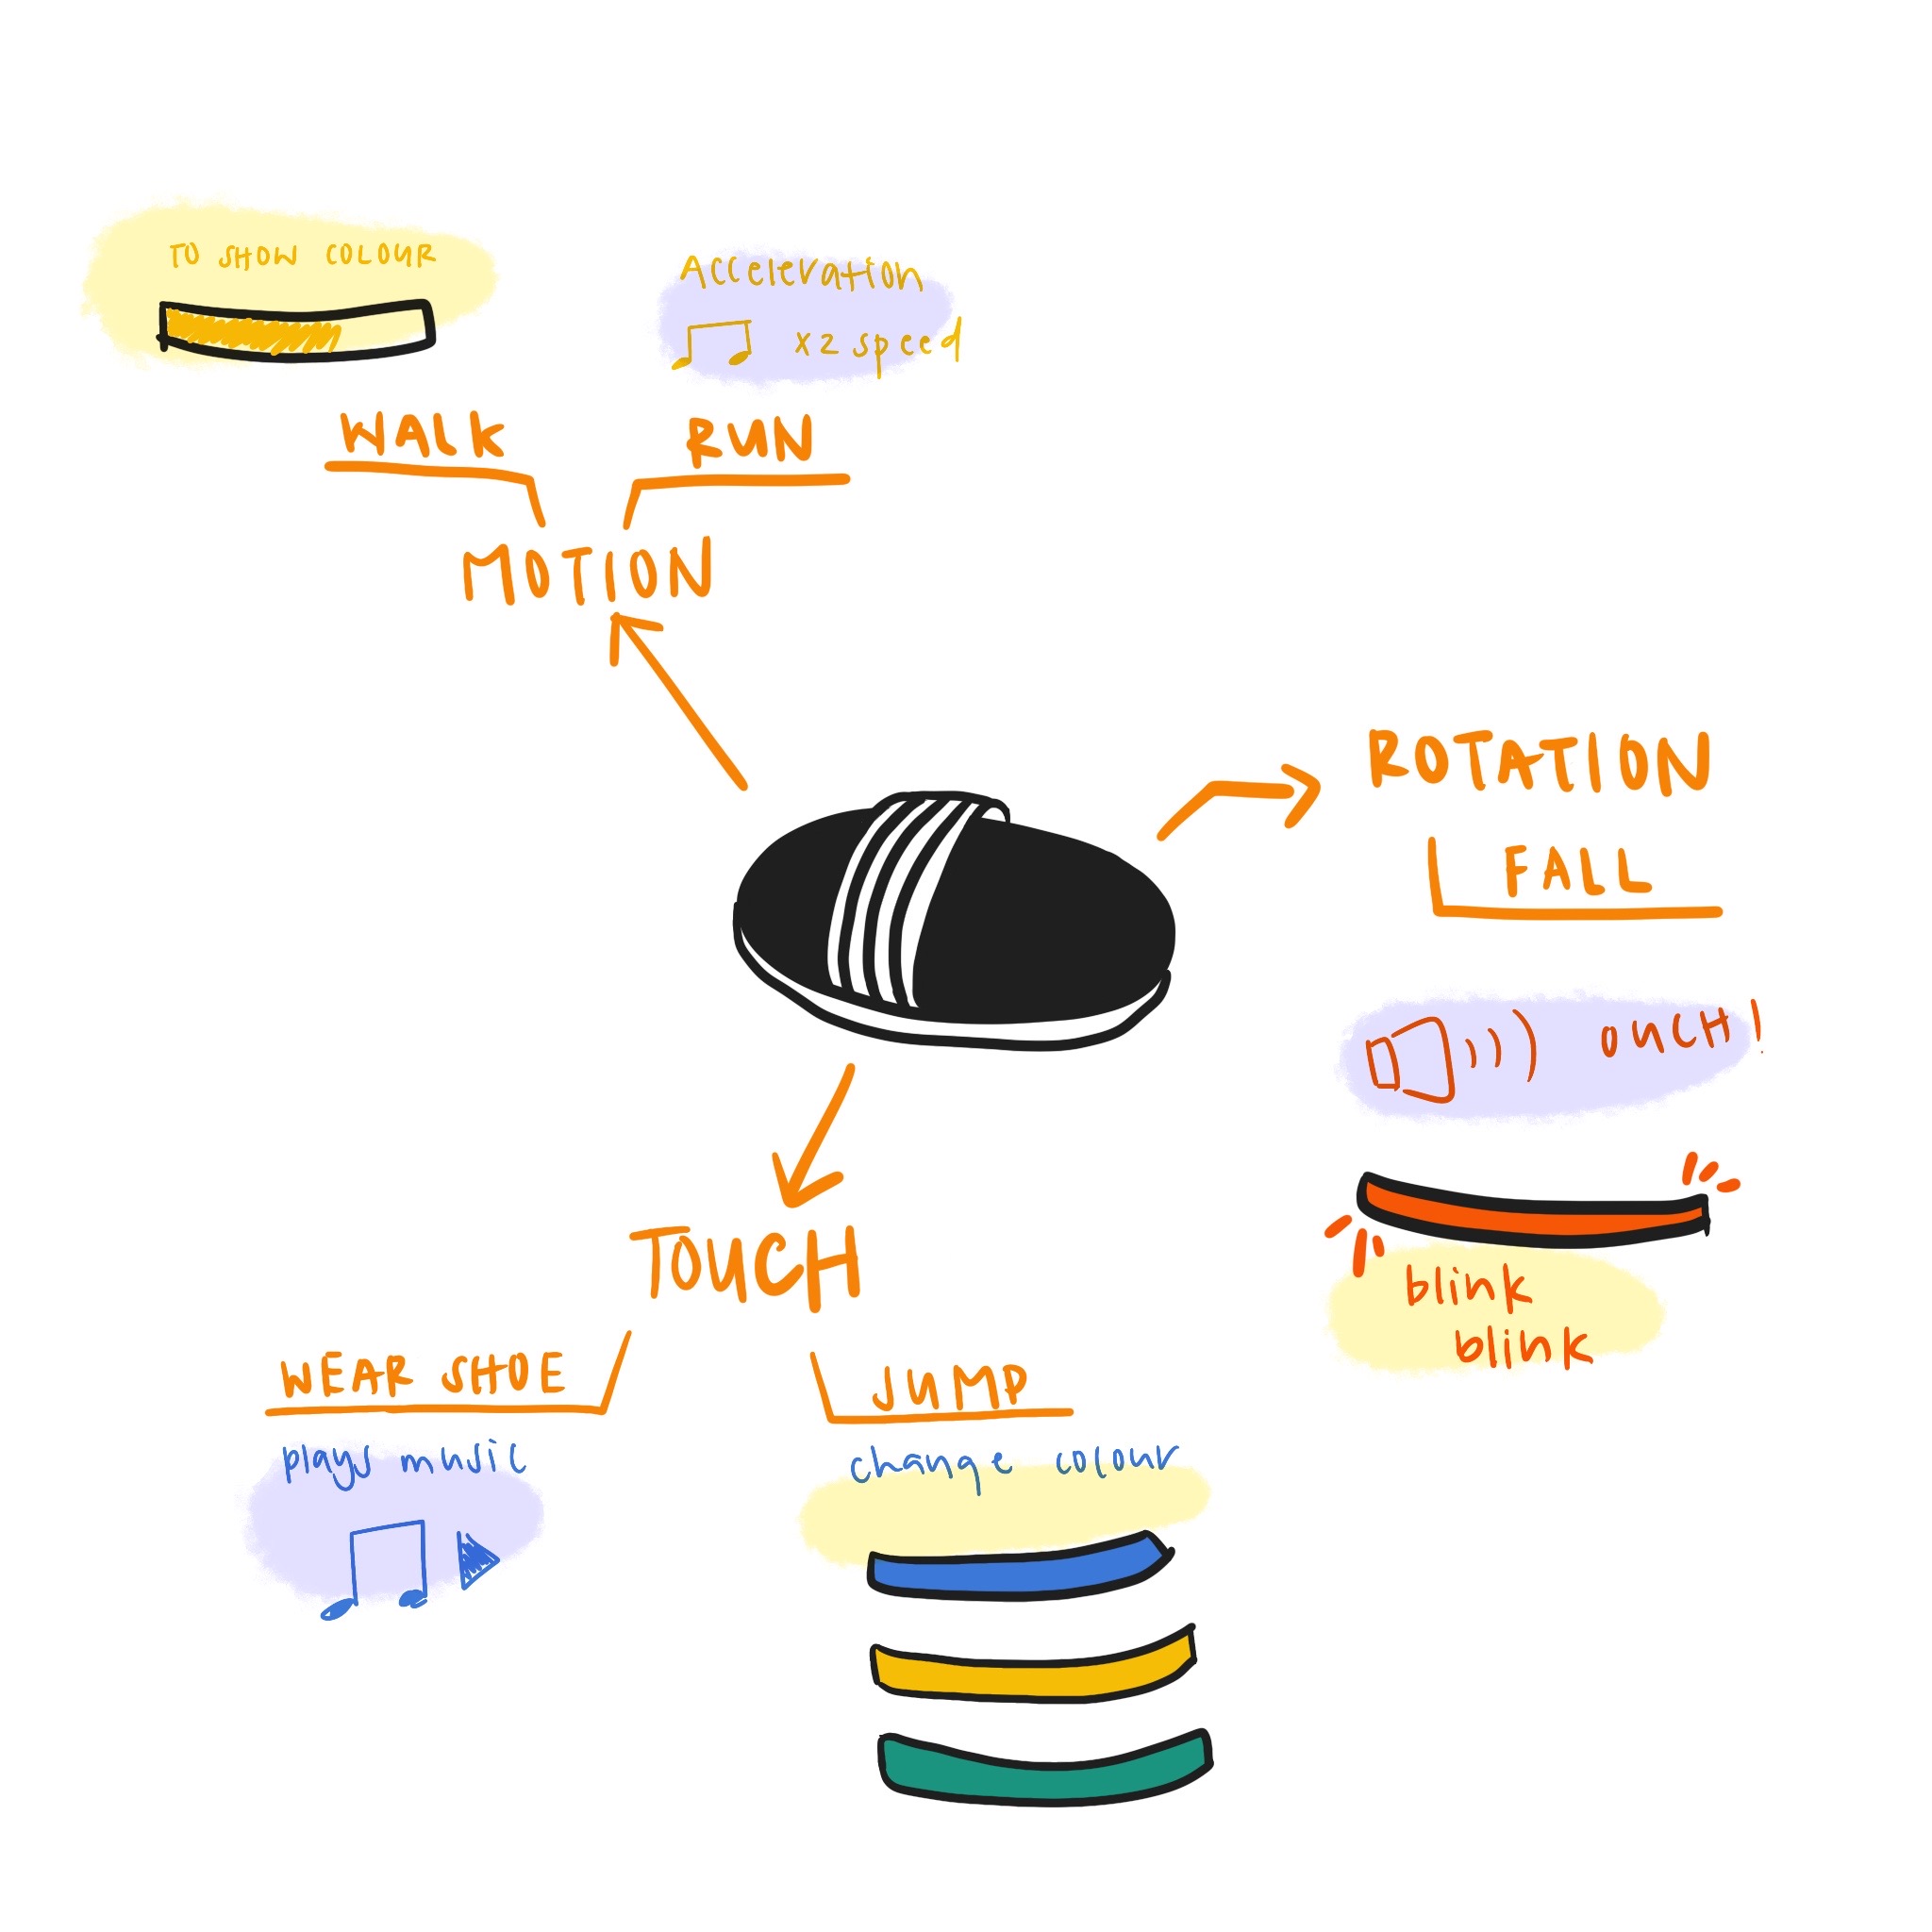 TO SHOW COLOUR
Acceleration
x2 speed
WALK
RUN
MOTION
ROTATION
FALL
OUCH!
blink
blink
TOUCH
WEAR SHOE
JUMP
plays music
change colour